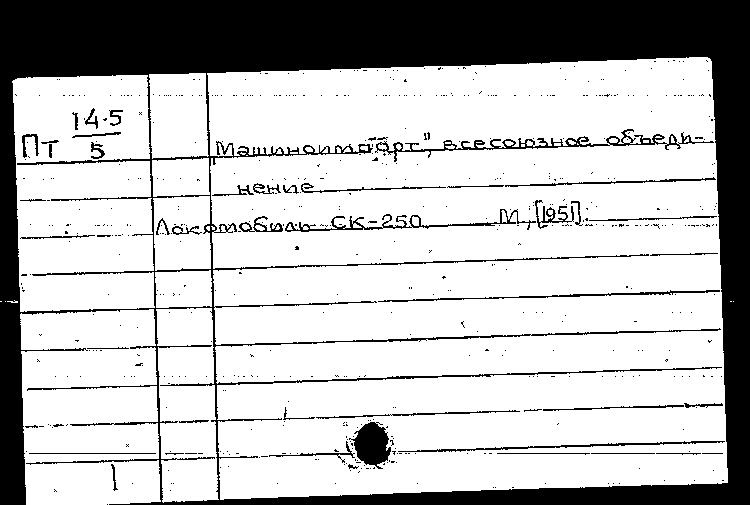 Пт 14·5
5
„Машиноимпорт", всесоюзное объеди-
нение
Локомобиль СК-250 М, [1951].
1